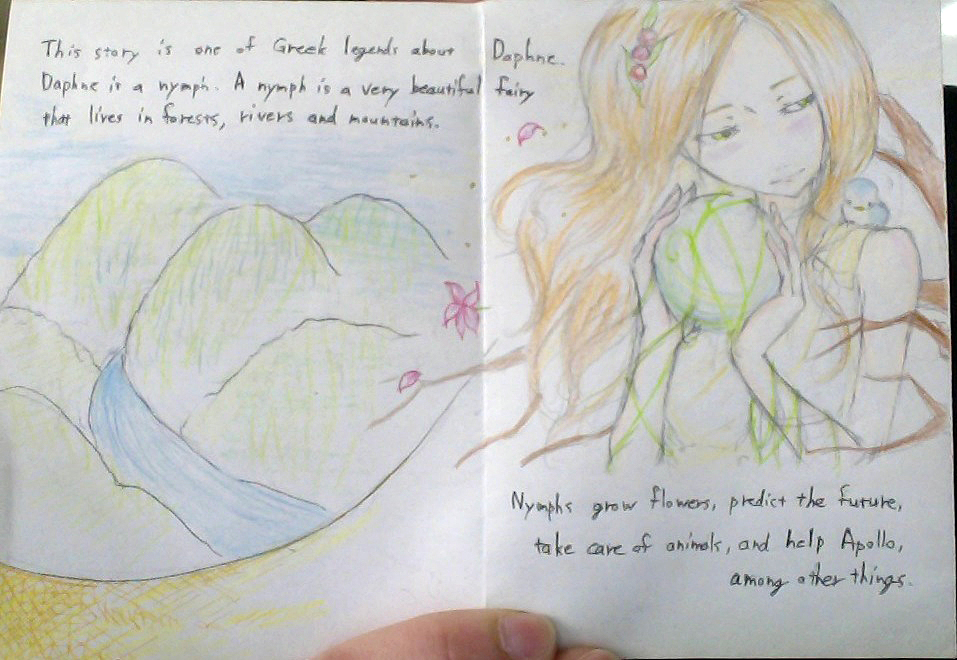 This story is one of Greek legends about Daphne.
Daphne is a nymph. A nymph is a very beautiful fairy
that lives in forests, rivers and mountains.
Nymphs grow flowers, predict the future,
take care of animals, and help Apollo,
among other things.